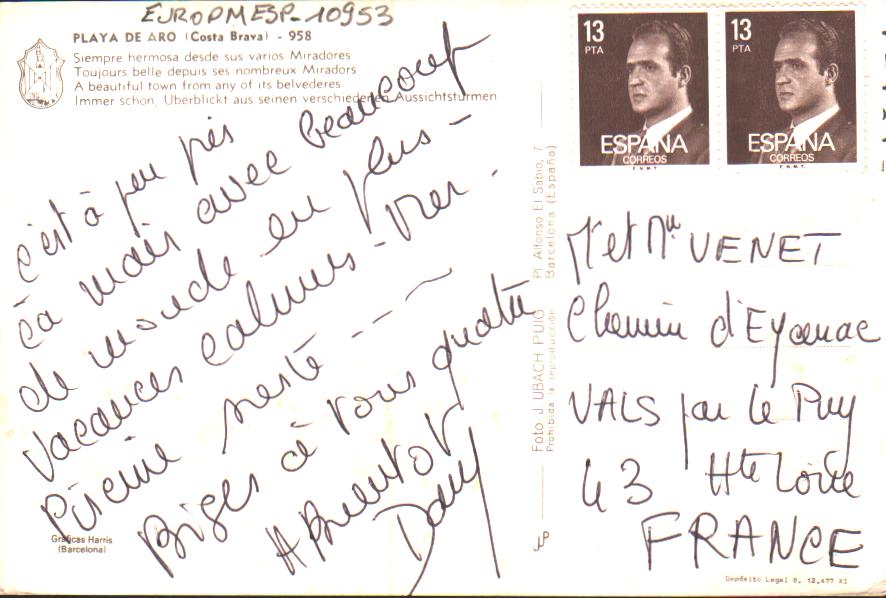 EUROPMESP-10953
PLAYA DE ARO (Costa Brava) - 958
Siempre hermosa desde sus varios Miradores
Toujours belle depuis ses nombreux Miradors
A beautiful town from any of its belvederes
Immer schon, Uberblickt aus seinen verschiedenen Aussichtsturmen
c'est à peu près
ça mais avec beaucoup
de monde en plus -
vacances calmes - Mer -
Piscine sieste - - -
Bises à vous quatre
A Bientot
Dany
Gráficas Harris
(Barcelona)
Foto J. UBACH PUIG Pl. Alfonso El Sabio, 7
Prohibida la reproducción Barcelona (España)
JUP
13
PTA
ESPAÑA
CORREOS
F.N.M.T.
13
PTA
ESPAÑA
CORREOS
F.N.M.T.
Mr et Mme VENET
Chemin d'Eycenac
VALS par le Puy
43 Hte Loire
FRANCE
Depósito Legal B. 12.477 XI